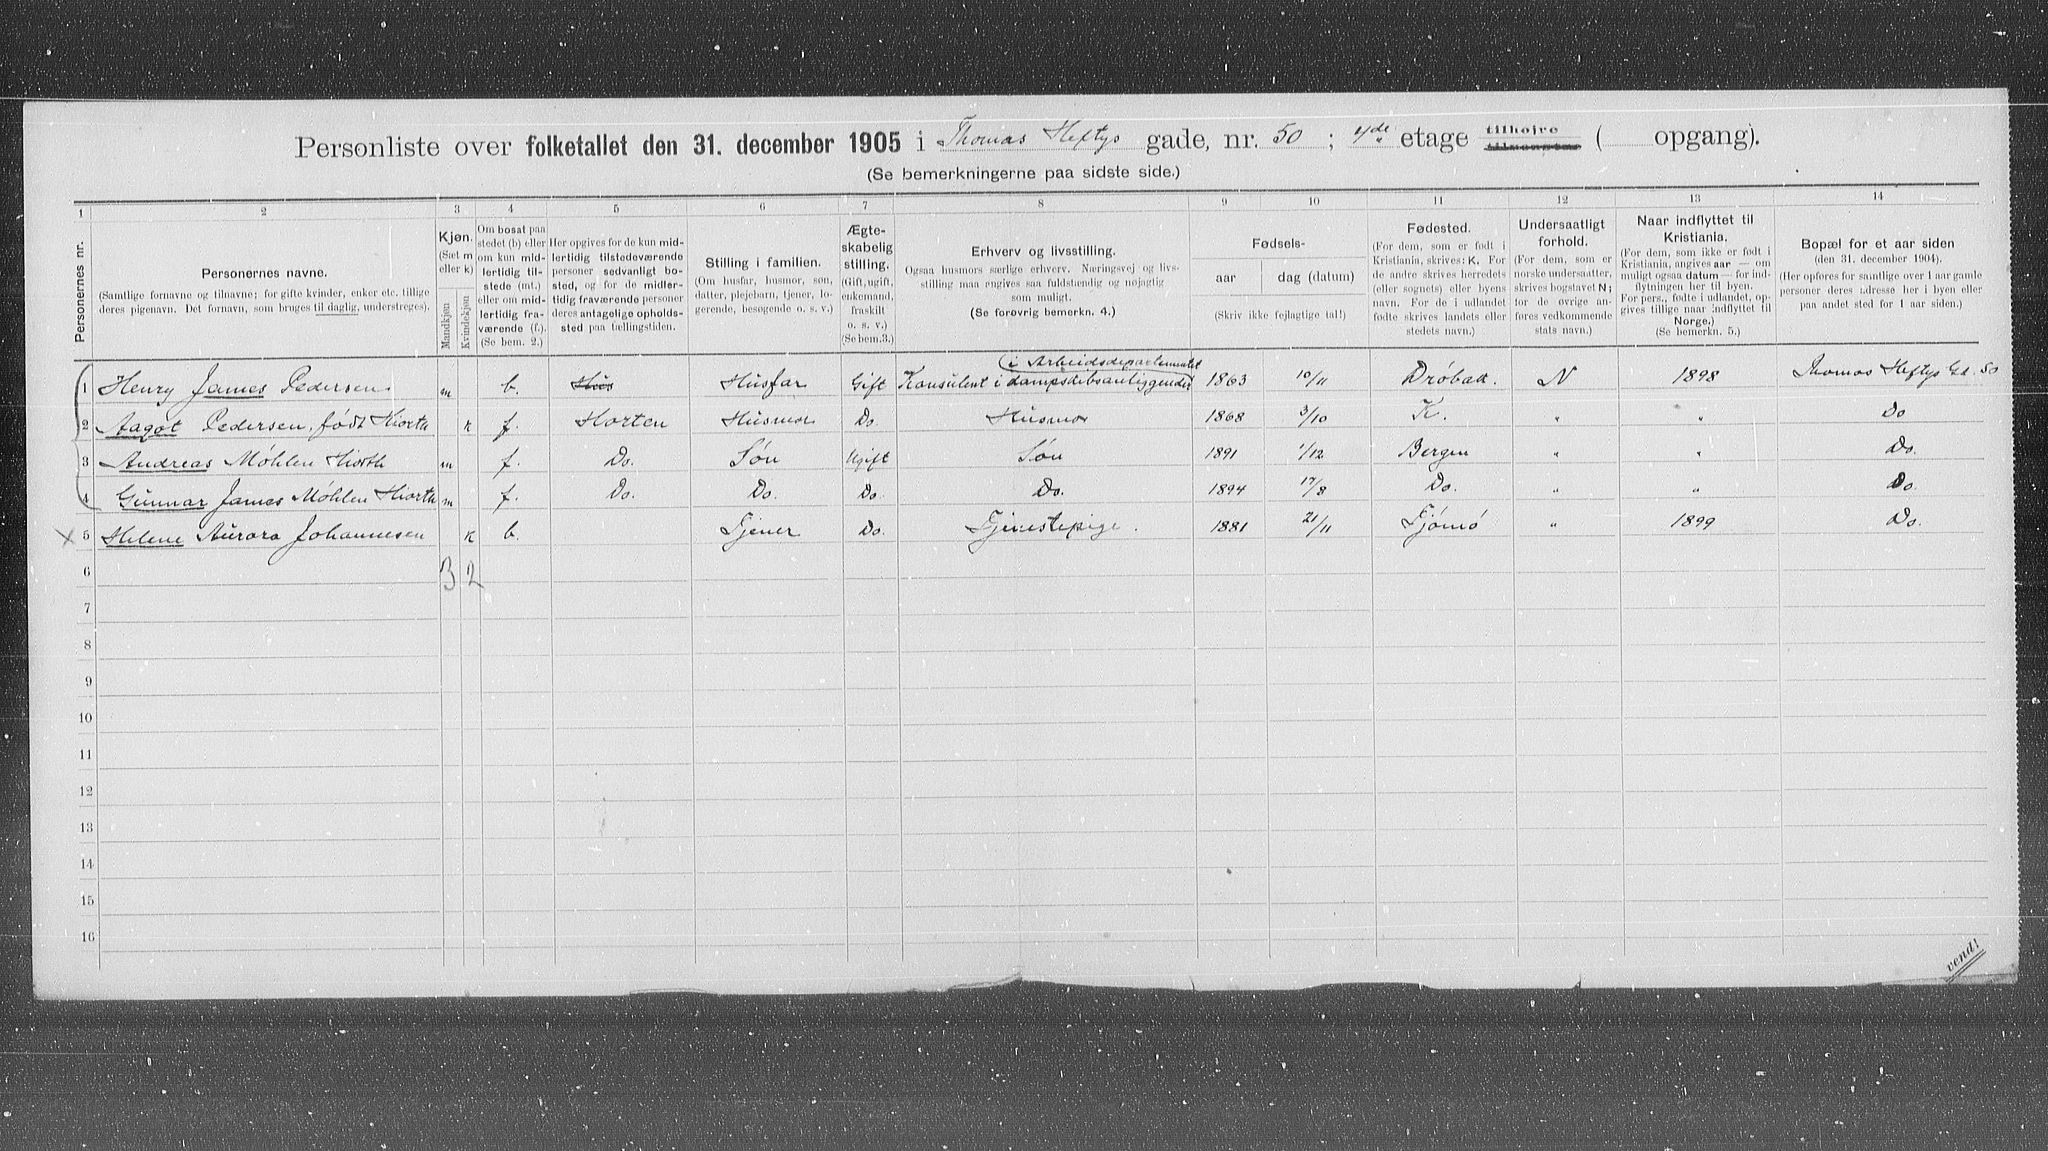 Personliste over folketallet den 31. december 1905 i Thomas Heftys gade, nr. 50 ; 4de etage tilhøjre ( opgang).
(Se bemerkningerne paa sidste side.)
1 2 3 4 5 6 7 8 9 10 11 12 13 14
Personernes nr.
Personernes navne.
(Samtlige fornavne og tilnavne; for gifte kvinder, enker etc. tillige
deres pigenavn. Det fornavn, som bruges til daglig, understreges).
Kjøn.
(Sæt m
eller k)
Mandkjøn
Kvindekjøn
Om bosat paa
stedet (b) eller
om kun mid-
lertidig til-
stede (mt.)
eller om mid-
lertidig fra-
værende (f.).
(Se bem. 2.)
Her opgives for de kun mid-
lertidig tilstedeværende
personer sedvanligt bo-
sted, og for de midler-
tidig fraværende personer
deres antagelige opholds-
sted paa tællingstiden.
Stilling i familien.
(Om husfar, husmor, søn,
datter, plejebarn, tjener, lo-
gerende, besøgende o. s. v.)
Ægte-
skabelig
stilling.
(Gift, ugift,
enkemand,
fraskilt
o. s. v.)
(Se bem. 3.)
Erhverv og livsstilling.
Ogsaa husmors særlige erhverv. Næringsvej og livs-
stilling maa angives saa fuldstændig og nøjagtig
som muligt.
(Se forøvrig bemerkn. 4.)
Fødsels-
aar dag (datum)
(Skriv ikke fejlagtige tal!)
Fødested.
(For dem, som er født i
Kristiania, skrives: K. For
de andre skrives herredets
(eller sognets) eller byens
navn. For de i udlandet
fødte skrives landets eller
stedets navn.)
Undersaatligt
forhold.
(For dem, som er
norske undersaatter,
skrives bogstavet N;
for de øvrige an-
føres vedkommende
stats navn.)
Naar indflyttet til
Kristiania.
(For dem, som ikke er født i
Kristiania, angives aar — om
muligt ogsaa datum — for ind-
flytningen her til byen.
For pers., fødte i udlandet, op-
gives tillige naar indflyttet til
Norge.)
(Se bemerkn. 5.)
Bopæl for et aar siden
(den 31. december 1904).
(Her opføres for samtlige over 1 aar gamle
personer deres adresse her i byen eller
paa andet sted for 1 aar siden.)
i Arbeidsdepartementet
1 Henry James Pedersen m b. Hus Husfar Gift Konsulent i dampskibsanliggender 1863 10/11 Drøbak. N 1898 Thomas Heftys Gd. 50
2 Aagot Pedersen, født Hiorth k f. Horten Husmor Do. Husmor 1868 3/10 K. " " Do
3 Andreas Møhlen Hiorth m f. Do. Søn Ugift Søn 1891 1/12 Bergen " " Do.
4 Gunnar James Møhlen Hiorth m f. Do. Do. Do. Do. 1894 17/8 Do. " " Do.
x 5 Helene Aurora Johannesen k b. Tjener Do. Tjenestepige. 1881 21/11 Tjømø " 1899 Do.
6 3 2
7
8
9
10
11
12
13
14
15
16
vend!